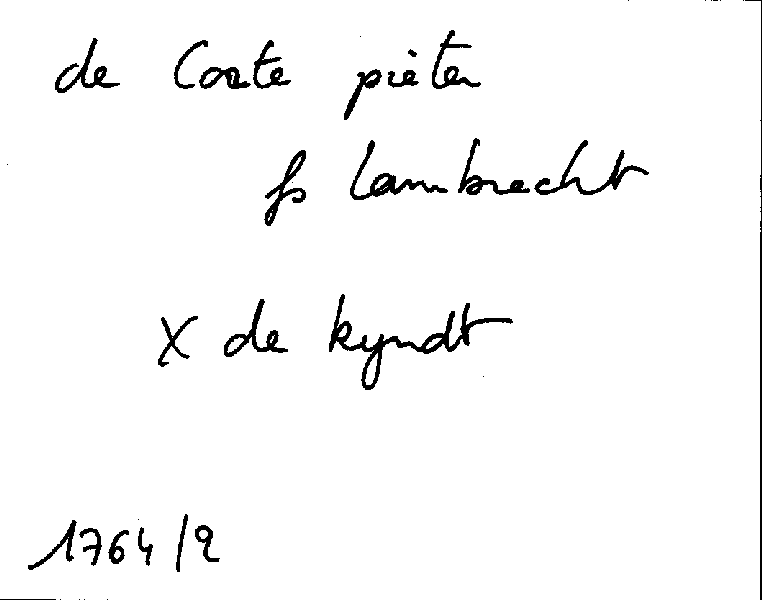 de Corte pieter
fs lambrecht
x de kyndt
1764/2